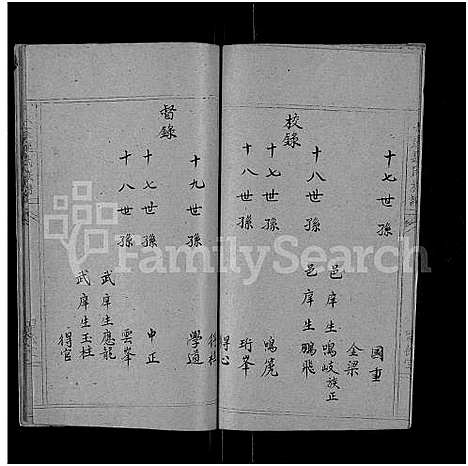 十七世孫 國重
金梁
邑庠生鳴岐族正
十八世孫 邑庠生鵬飛
校錄
十七世孫 鳴篪
十八世孫 珩峯
得心
十九世孫 學道
督錄
十七世孫 申正
十八世孫 雲峯
武庠生應龍
武庠生玉柱
得官
FamilySearch